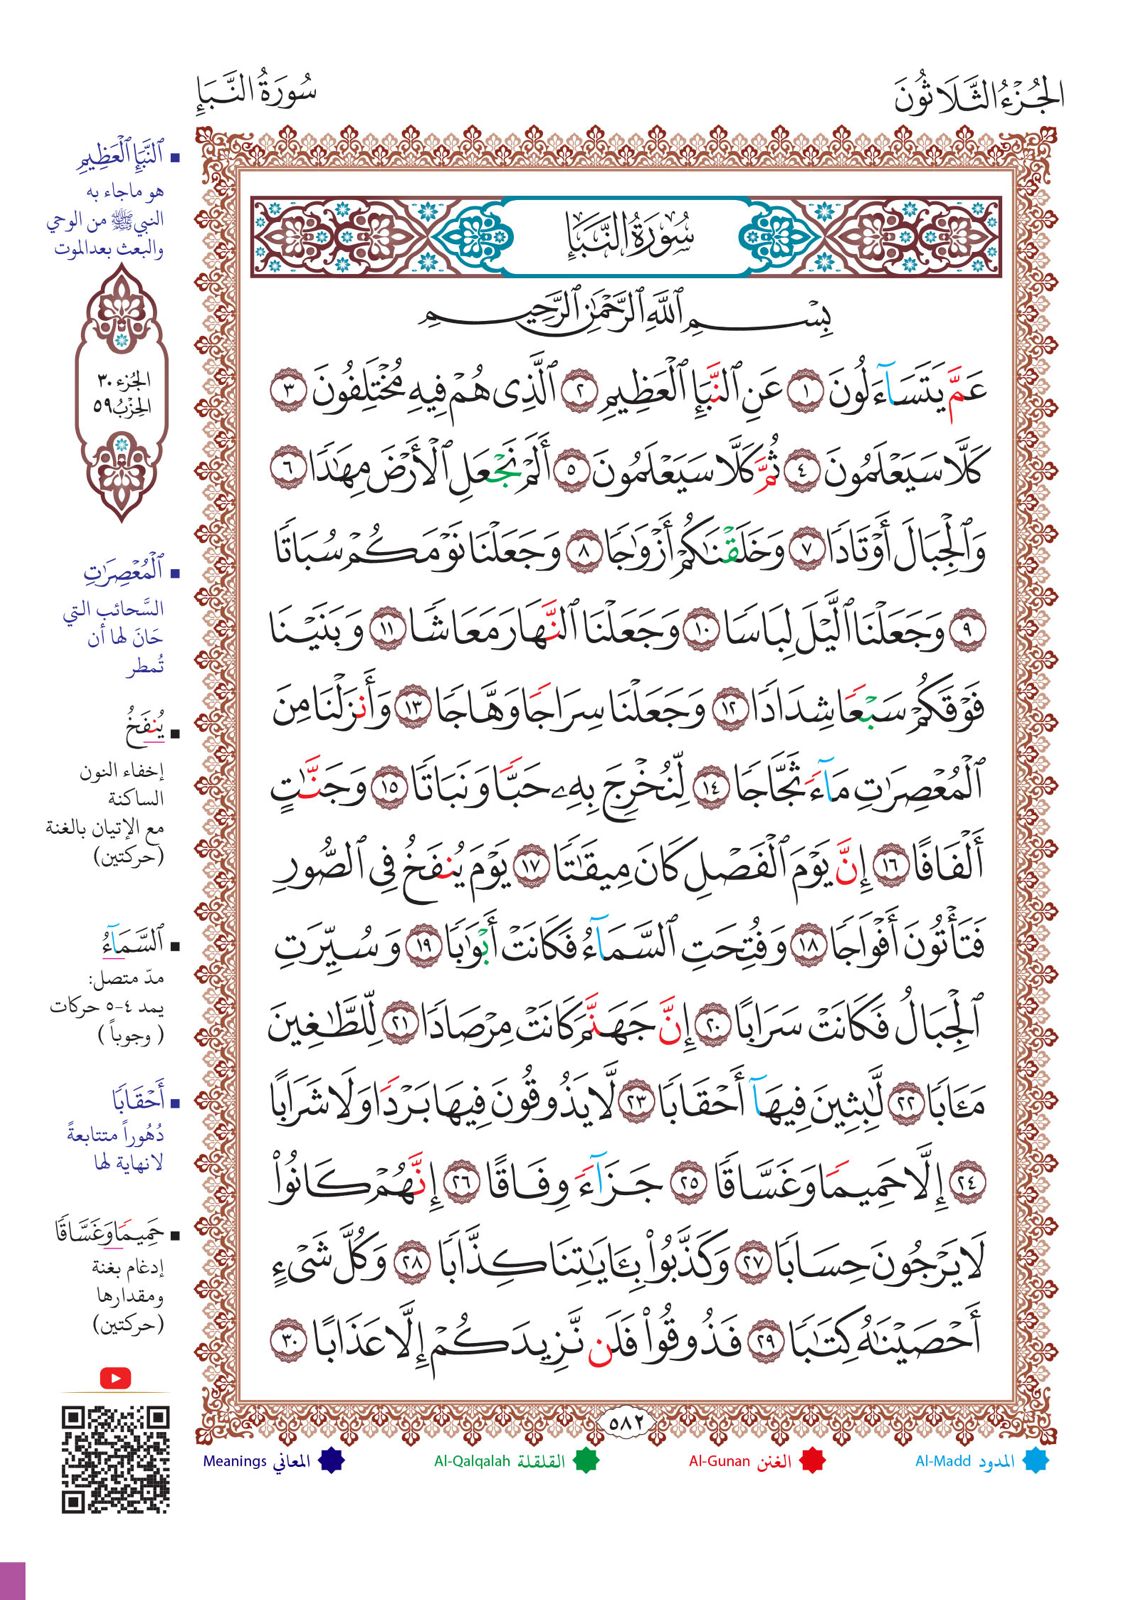 الجُزْءُ الثَّلَاثُونَ
سُورَةُ النَّبَإِ
سُورَةُ النَّبَإِ
بِسْمِ ٱللَّهِ ٱلرَّحْمَٰنِ ٱلرَّحِيمِ
عَمَّ يَتَسَآءَلُونَ ١ عَنِ ٱلنَّبَإِ ٱلْعَظِيمِ ٢ ٱلَّذِى هُمْ فِيهِ مُخْتَلِفُونَ ٣
كَلَّا سَيَعْلَمُونَ ٤ ثُمَّ كَلَّا سَيَعْلَمُونَ ٥ أَلَمْ نَجْعَلِ ٱلْأَرْضَ مِهَٰدًا ٦
وَٱلْجِبَالَ أَوْتَادًا ٧ وَخَلَقْنَٰكُمْ أَزْوَٰجًا ٨ وَجَعَلْنَا نَوْمَكُمْ سُبَاتًا
٩ وَجَعَلْنَا ٱلَّيْلَ لِبَاسًا ١٠ وَجَعَلْنَا ٱلنَّهَارَ مَعَاشًا ١١ وَبَنَيْنَا
فَوْقَكُمْ سَبْعًا شِدَادًا ١٢ وَجَعَلْنَا سِرَاجًا وَهَّاجًا ١٣ وَأَنزَلْنَا مِنَ
ٱلْمُعْصِرَٰتِ مَآءً ثَجَّاجًا ١٤ لِّنُخْرِجَ بِهِۦ حَبًّا وَنَبَاتًا ١٥ وَجَنَّٰتٍ
أَلْفَافًا ١٦ إِنَّ يَوْمَ ٱلْفَصْلِ كَانَ مِيقَٰتًا ١٧ يَوْمَ يُنفَخُ فِى ٱلصُّورِ
فَتَأْتُونَ أَفْوَاجًا ١٨ وَفُتِحَتِ ٱلسَّمَآءُ فَكَانَتْ أَبْوَٰبًا ١٩ وَسُيِّرَتِ
ٱلْجِبَالُ فَكَانَتْ سَرَابًا ٢٠ إِنَّ جَهَنَّمَ كَانَتْ مِرْصَادًا ٢١ لِّلطَّٰغِينَ
مَـَٔابًا ٢٢ لَّٰبِثِينَ فِيهَآ أَحْقَابًا ٢٣ لَّا يَذُوقُونَ فِيهَا بَرْدًا وَلَا شَرَابًا
٢٤ إِلَّا حَمِيمًا وَغَسَّاقًا ٢٥ جَزَآءً وِفَاقًا ٢٦ إِنَّهُمْ كَانُوا۟
لَا يَرْجُونَ حِسَابًا ٢٧ وَكَذَّبُوا۟ بِـَٔايَٰتِنَا كِذَّابًا ٢٨ وَكُلَّ شَىْءٍ
أَحْصَيْنَٰهُ كِتَٰبًا ٢٩ فَذُوقُوا۟ فَلَن نَّزِيدَكُمْ إِلَّا عَذَابًا ٣٠
٥٨٢
ٱلنَّبَإِ ٱلْعَظِيمِ
هو ماجاء به
النبي ﷺ من الوحي
والبعث بعدالموت
الجُزء ٣٠
الحِزْبُ ٥٩
ٱلْمُعْصِرَٰتِ
السَّحائب التي
حَانَ لها أن
تُمطر
يُنفَخُ
إخفاء النون
الساكنة
مع الإتيان بالغنة
(حركتين)
ٱلسَّمَآءُ
مدّ متصل:
يمد ٤-٥ حركات
( وجوباً )
أَحْقَابًا
دُهُوراً متتابعةً
لانهاية لها
حَمِيمًا وَغَسَّاقًا
إدغام بغنة
ومقدارها
(حركتين)
المدود Al-Madd
الغنن Al-Gunan
القلقلة Al-Qalqalah
المعاني Meanings